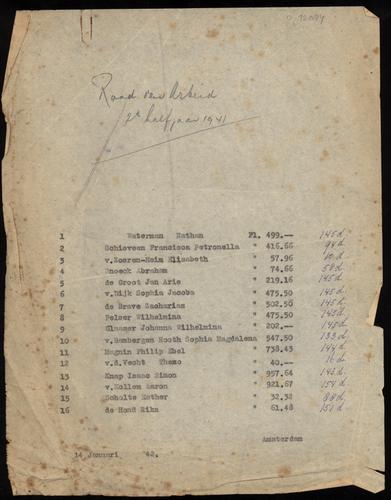 Raad van Arbeid
2e halfjaar 1941
1 Waterman Nathan Fl. 499.-- 145 d.
2 Schieveen Francisca Petronella " 416.66 94 d
3 v.Zoeren-Heim Elisabeth " 57.96
4 Knoeck Abraham " 74.66 58 d
5 de Groot Jan Arie " 219.16 145 d.
6 v.Dijk Sophia Jacoba " 475.50 145 d.
7 de Brave Zacharias " 502.50 145 d.
8 Pelser Wilhelmina " 475.50 145 d.
9 Glasager Johanna Wilhelmina " 202.--
10 v.Bambergen Kooth Sophia Magdalena 547.50 133 d.
11 Magnin Philip Ebel " 738.43 144 d.
12 v.d.Vecht Theo " 40.-- 16 d.
13 Knap Isaac Simon " 957.64 145 d.
14 v.Kollem Aaron " 921.67 154 d
15 Scholte Esther " 32.32 88 d
16 de Hond Rika " 61.48 151 d.
Amsterdam
14 Januari '42.